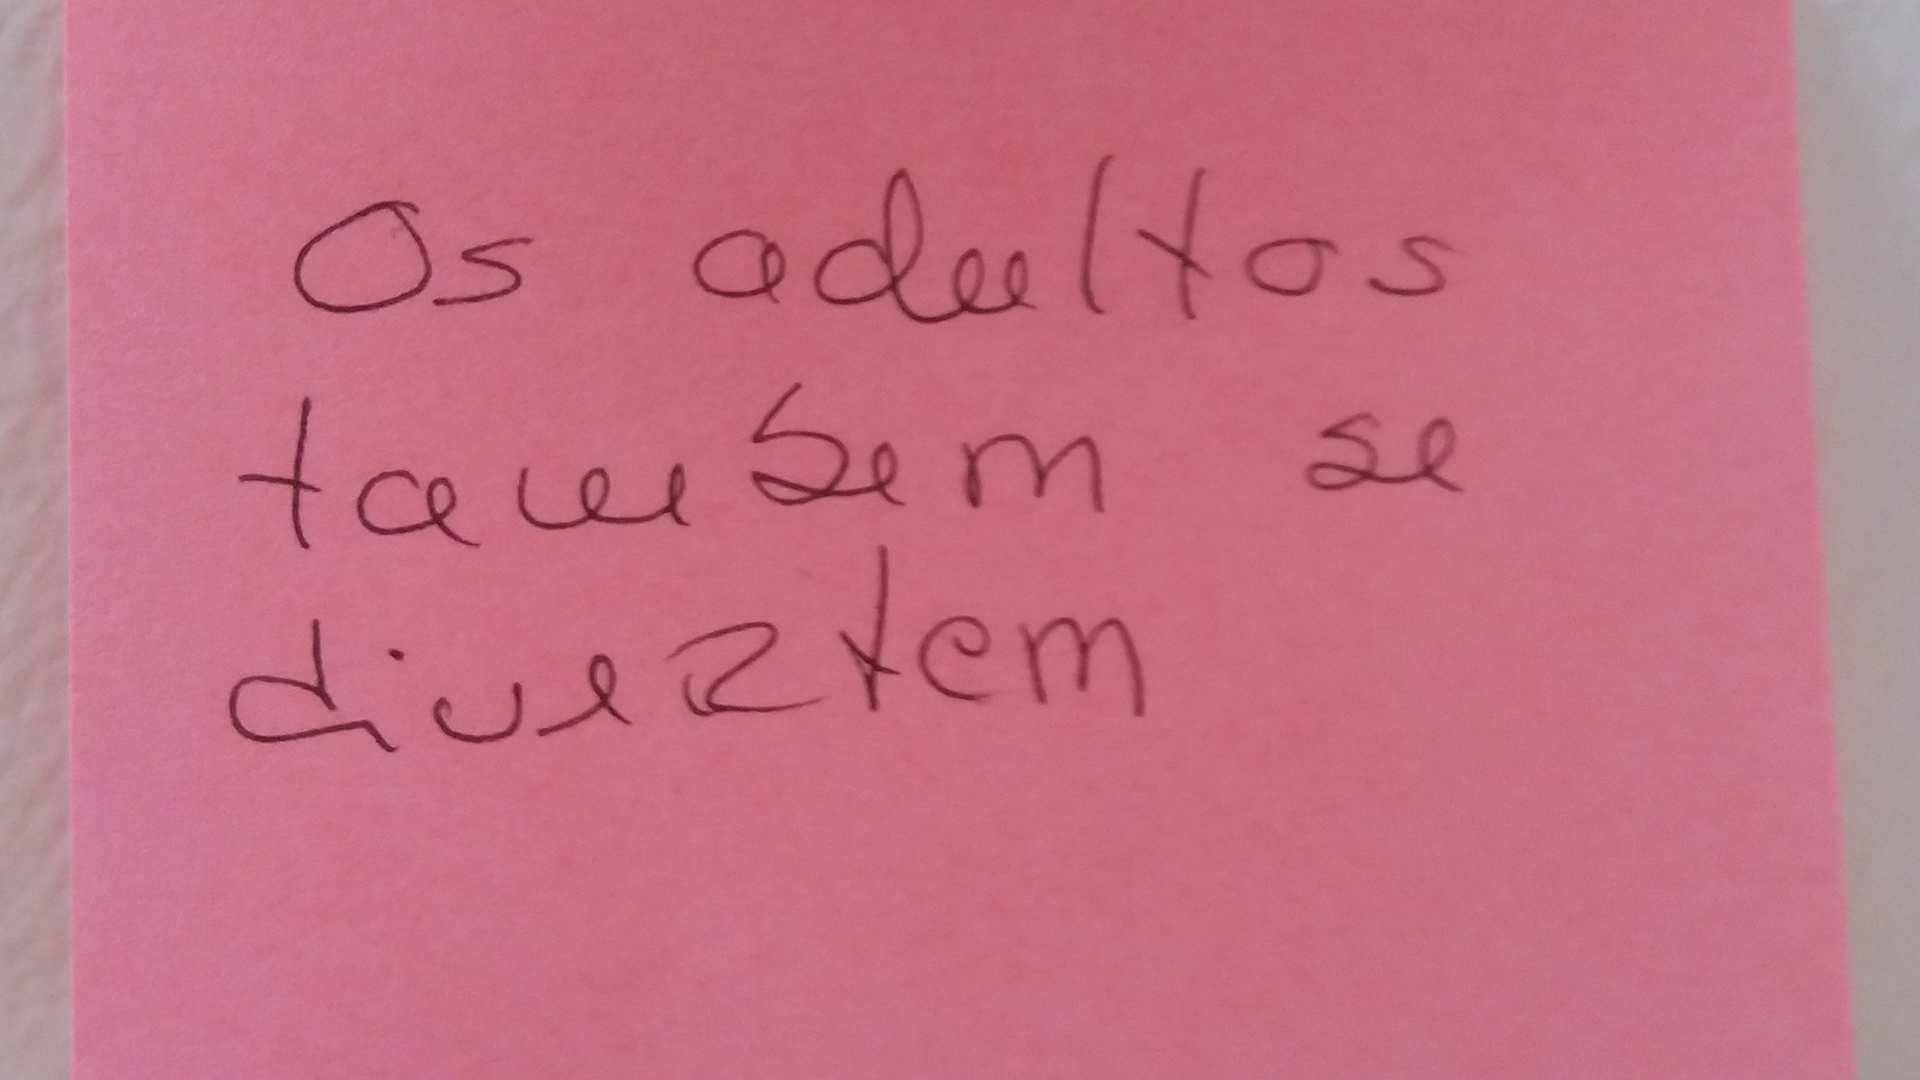 Os adultos
tambem se
divertem